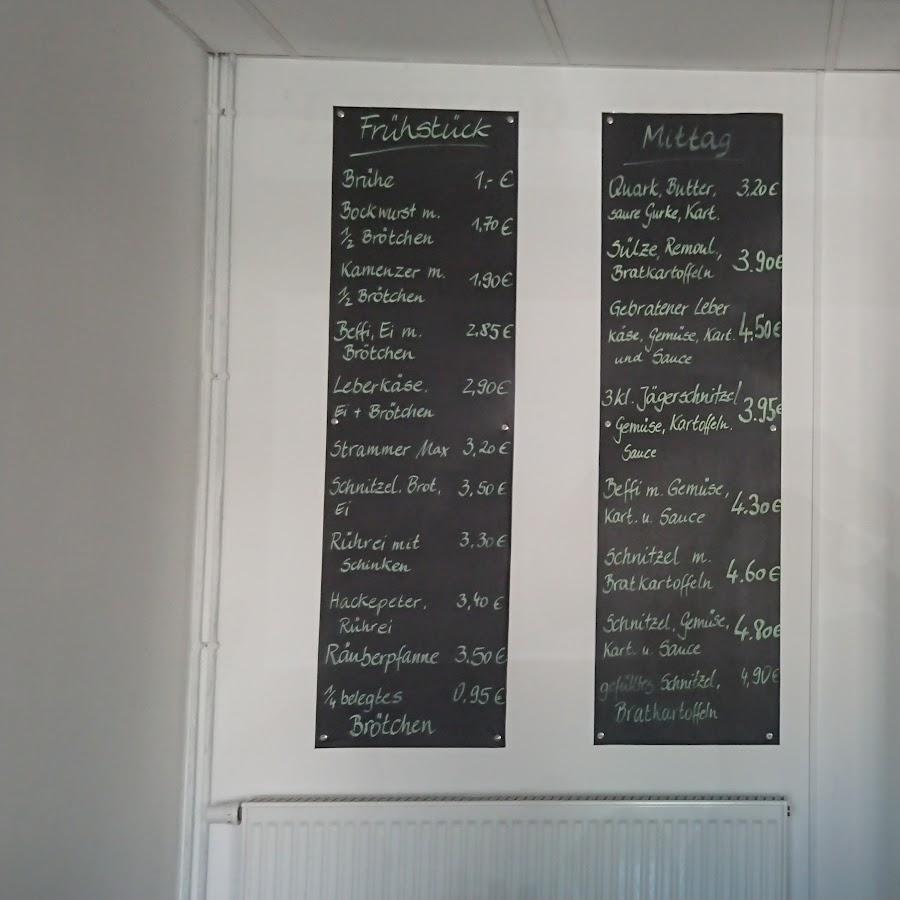 Frühstück
Brühe 1.- €
Bockwurst m.
1/2 Brötchen 1,70 €
Kamenzer m.
1/2 Brötchen 1.90 €
Beffi, Ei m. 2,85 €
Brötchen
Leberkäse. 2,90 €
Ei + Brötchen
Strammer Max 3,20 €
Schnitzel. Brot, 3,50 €
Ei
Rührei mit 3,30 €
Schinken
Hackepeter, 3,40 €
Rührei
Räuberpfanne 3.50 €
1/4 belegtes 0.95 €
Brötchen
Mittag
Quark, Butter, 3,20 €
saure Gurke, Kart.
Sülze, Remoul.,
Bratkartoffeln 3.90€
Gebratener Leber
käse, Gemüse, Kart. 4.50€
und Sauce
3 kl. Jägerschnitzel
Gemüse, Kartoffeln. 3.95€
Sauce
Beffi m. Gemüse,
Kart. u. Sauce 4.30€
Schnitzel m.
Bratkartoffeln 4.60€
Schnitzel, Gemüse, 4.80€
Kart. u. Sauce
gefülltes Schnitzel, 4,90 €
Bratkartoffeln